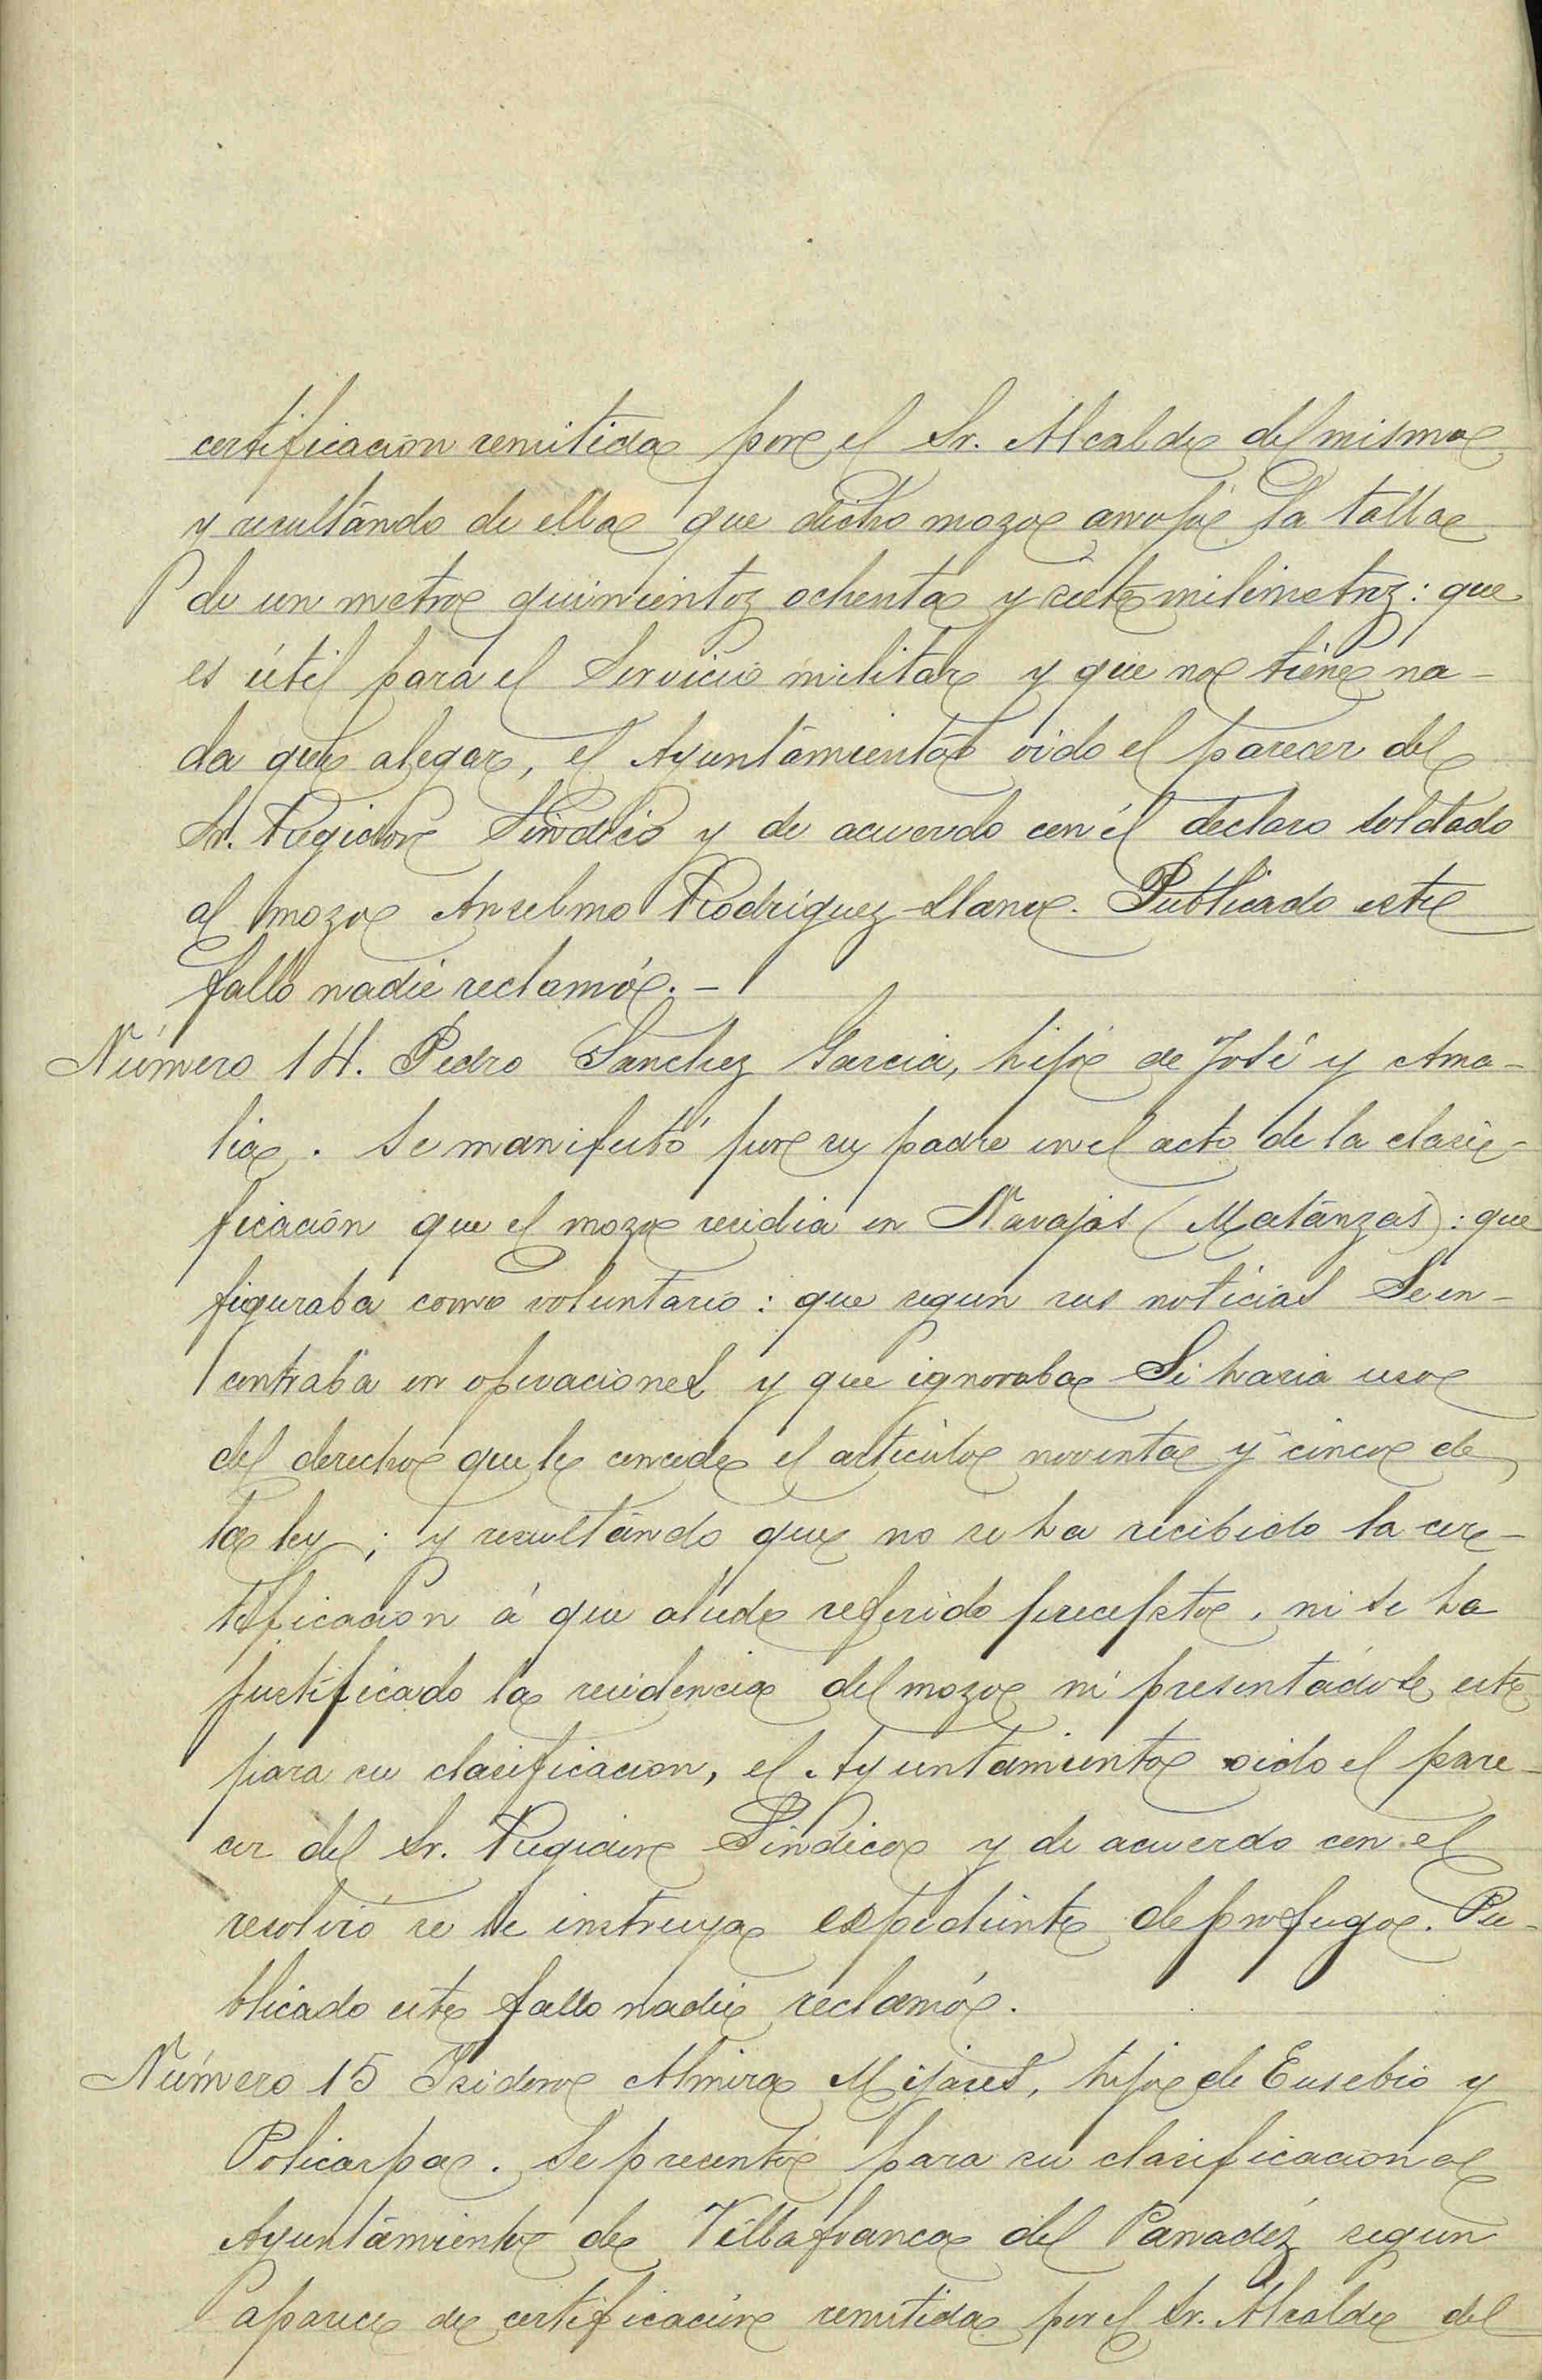 certificación remitida por el Sr. Alcalde del mismo
y resultándo de ella que dicho mozo arrojó la talla
de un metro quinientos ochenta y siete milimetros: que
es útil para el Servicio militar y que no tiene na-
da que alegar, el Ayuntámiento oido el parecer del
Sr. Regidor Sindico y de acuerdo con él declaro soldado
al mozo Anselmo Rodríguez Llano. Publicado este
fallo nadie reclamó. -
Número 14. Pedro Sanchez Garcia, hijo de José y Ama-
lia. Se manifestó por su padre en el acto de la clasi-
ficación que el mozo residia en Navajas (Matánzas): que
figuraba como voluntario: que segun sus noticias Se en-
contraba en operaciones y que ignoraba Si haria uso
del derecho que le concede el articulo noventa y cinco de
la ley; y resultándo que no se ha recibido la cer-
tificación á que alude referido precepto, ni se ha
justificado la residencia del mozo ni presentádose este
para su clasificacion, el Ayuntamiento oido el pare-
cer del Sr. Regidor Sindico y de acuerdo con el
resolvió se le instruya espediente de profugo. Pu-
blicado este fallo nadie reclamó.
Número 15 Isidoro Almira Mijares, hijo de Eusebio y
Policarpa. Se presentó para su clasificacion al
Ayuntámiento de Villafranca del Panadéz segun
aparece de certificación remitida por el Sr. Alcalde del